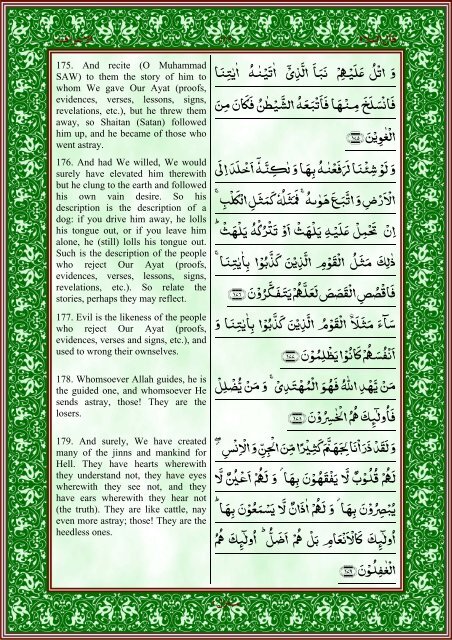 175. And recite (O Muhammad
SAW) to them the story of him to
whom We gave Our Ayat (proofs,
evidences, verses, lessons, signs,
revelations, etc.), but he threw them
away, so Shaitan (Satan) followed
him up, and he became of those who
went astray.
وَ اتْلُ عَلَيْهِمْ نَبَاَ الَّذِيْٓ اٰتَيْنٰهُ اٰيٰتِنَا
فَانْسَلَخَ مِنْهَا فَاَتْبَعَهُ الشَّيْطٰنُ فَكَانَ مِنَ
الْغٰوِيْنَ ﴿۱۷۵﴾
176. And had We willed, We would
surely have elevated him therewith
but he clung to the earth and followed
his own vain desire. So his
description is the description of a
dog: if you drive him away, he lolls
his tongue out, or if you leave him
alone, he (still) lolls his tongue out.
Such is the description of the people
who reject Our Ayat (proofs,
evidences, verses, lessons, signs,
revelations, etc.). So relate the
stories, perhaps they may reflect.
وَ لَوْ شِئْنَا لَرَفَعْنٰهُ بِهَا وَ لٰكِنَّهٗٓ اَخْلَدَ اِلَى
الْاَرْضِ وَ اتَّبَعَ هَوٰىهُ ۚ فَمَثَلُهٗ كَمَثَلِ الْكَلْبِ ۚ
اِنْ تَحْمِلْ عَلَيْهِ يَلْهَثْ اَوْ تَتْرُكْهُ يَلْهَثْ ؕ
ذٰلِكَ مَثَلُ الْقَوْمِ الَّذِيْنَ كَذَّبُوْا بِاٰيٰتِنَا ۚ
فَاقْصُصِ الْقَصَصَ لَعَلَّهُمْ يَتَفَكَّرُوْنَ ﴿۱۷۶﴾
177. Evil is the likeness of the people
who reject Our Ayat (proofs,
evidences, verses and signs, etc.), and
used to wrong their ownselves.
سَآءَ مَثَلًا ۨالْقَوْمُ الَّذِيْنَ كَذَّبُوْا بِاٰيٰتِنَا وَ
اَنْفُسَهُمْ كَانُوْا يَظْلِمُوْنَ ﴿۱۷۷﴾
178. Whomsoever Allah guides, he is
the guided one, and whomsoever He
sends astray, those! They are the
losers.
مَنْ يَّهْدِ اللّٰهُ فَهُوَ الْمُهْتَدِيْ ۚ وَ مَنْ يُّضْلِلْ
فَاُولٰٓئِكَ هُمُ الْخٰسِرُوْنَ ﴿۱۷۸﴾
179. And surely, We have created
many of the jinns and mankind for
Hell. They have hearts wherewith
they understand not, they have eyes
wherewith they see not, and they
have ears wherewith they hear not
(the truth). They are like cattle, nay
even more astray; those! They are the
heedless ones.
وَ لَقَدْ ذَرَاْنَا لِجَهَنَّمَ كَثِيْرًا مِّنَ الْجِنِّ وَ الْاِنْسِ ۖ
لَهُمْ قُلُوْبٌ لَّا يَفْقَهُوْنَ بِهَا ۫ وَ لَهُمْ اَعْيُنٌ لَّا
يُبْصِرُوْنَ بِهَا ۫ وَ لَهُمْ اٰذَانٌ لَّا يَسْمَعُوْنَ بِهَا ؕ
اُولٰٓئِكَ كَالْاَنْعَامِ بَلْ هُمْ اَضَلُّ ؕ اُولٰٓئِكَ هُمُ
الْغٰفِلُوْنَ ﴿۱۷۹﴾